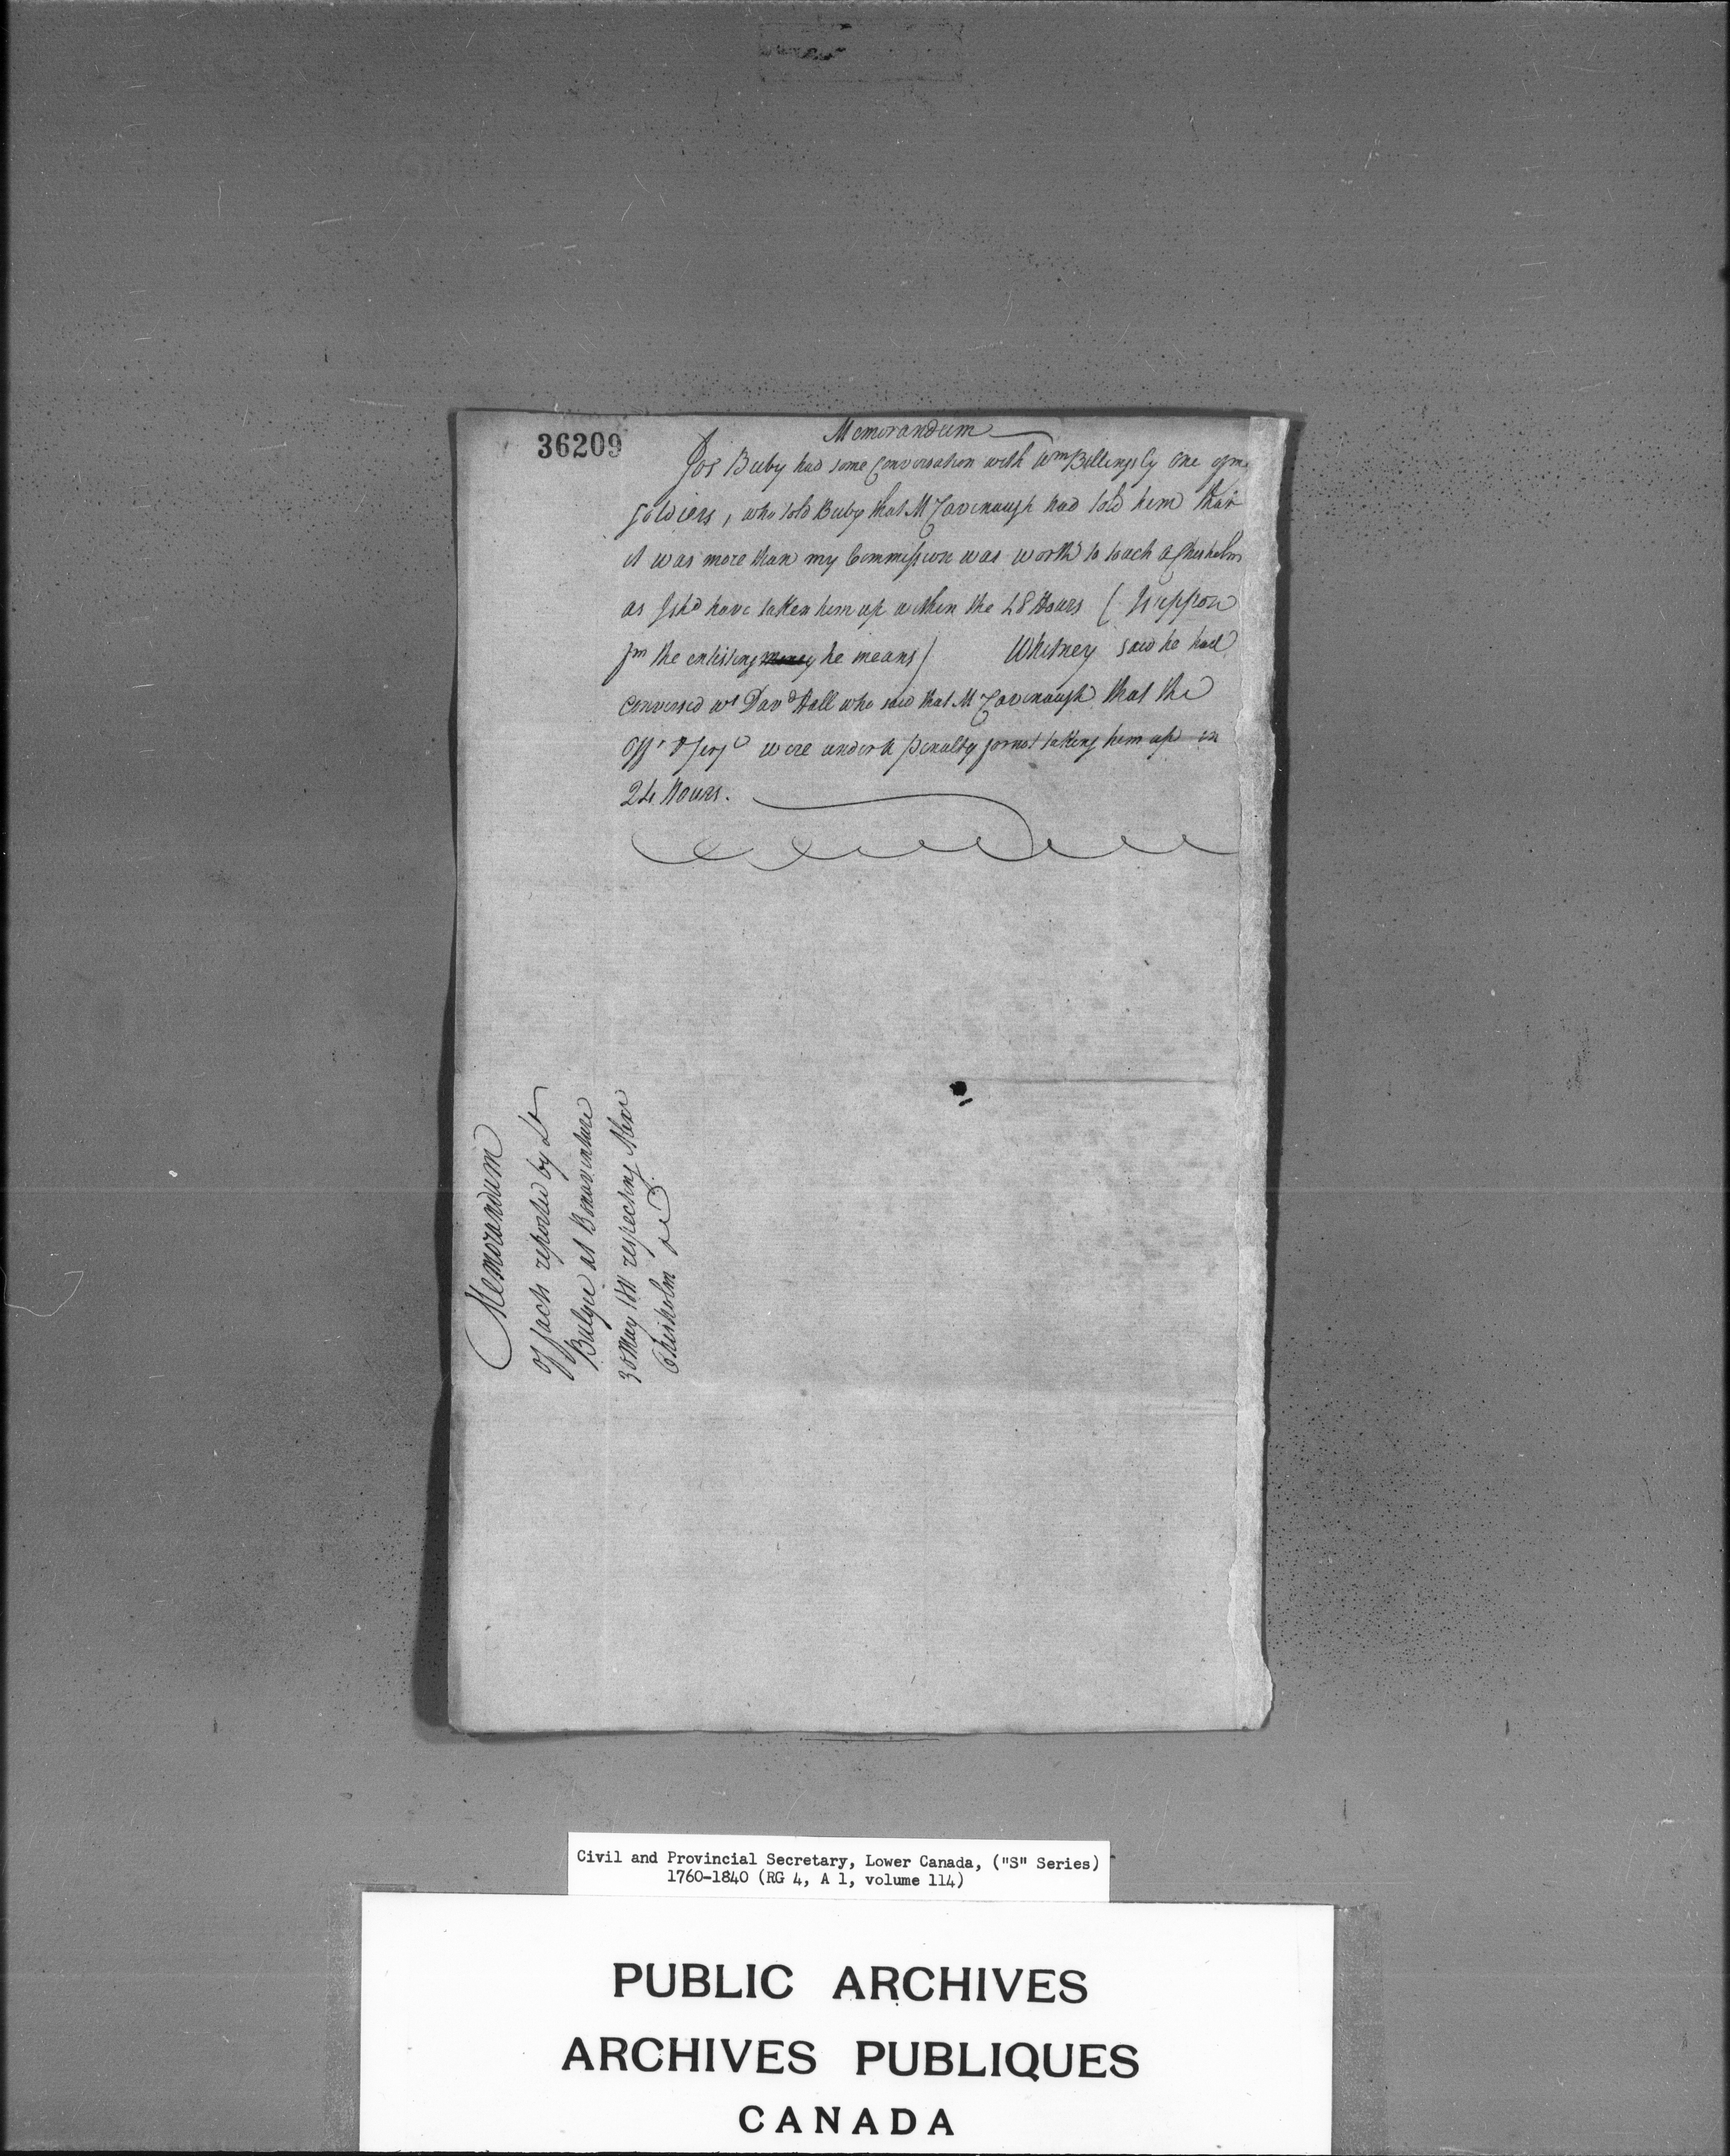 36209
Memorandum
Jos Beeby had some Conversation with Wm Billingsly one of my
Soldiers, who told Beeby that Mr Cavenaugh had told him that
it was more than my Commission was worth to touch A Chisholm
as I shd have taken him up within the 48 Hours (I suppose
fm the enlisting money he means) Whitney said he had
Conversed wt Davd Hall who said that Mr Cavenaugh that the
Offr & Serjt were under a penalty for not taking him up in
24 Hours.
Memorandum
of facts reported by Lt
Bulger at Bonaventure
30 May 1811 respecting Alexr
Chisholm
Civil and Provincial Secretary, Lower Canada, ("S" Series)
1760-1840 (RG 4, A 1, volume 114)
PUBLIC ARCHIVES
ARCHIVES PUBLIQUES
CANADA